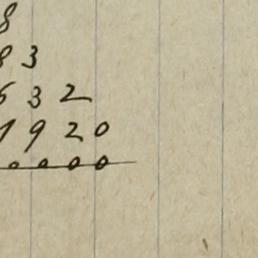 8
83
632
1920
0000